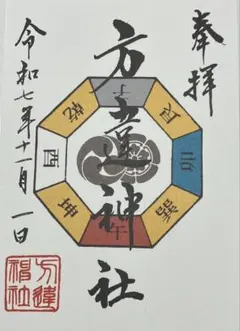 奉拝
方違神社
令和七年十一月一日
子
艮
卯
巽
午
坤
酉
乾
方違神社